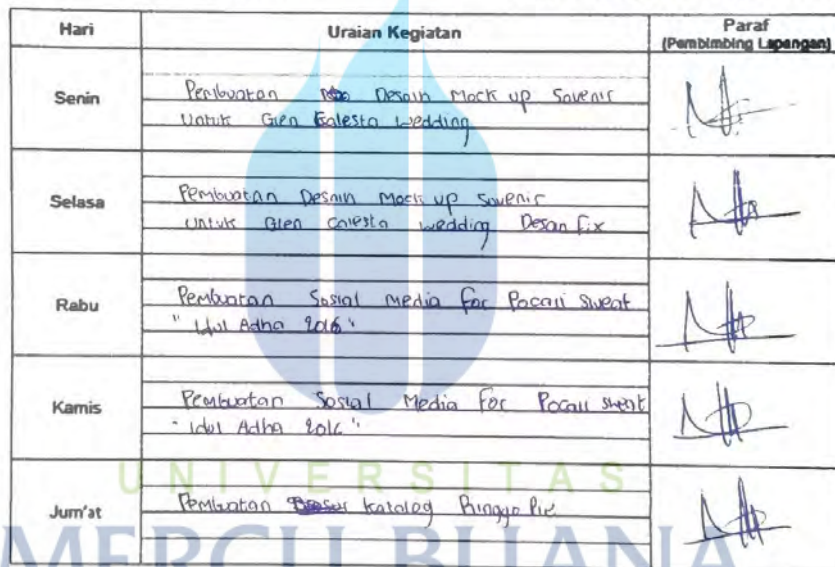 Hari Uraian Kegiatan Paraf
(Pembimbing Lapangan)
Senin
Pembuatan Desain Mock up Sovenir
Untuk Glen Galesta Wedding
Selasa
Pembuatan Desain Mock up Sovenir
Untuk Glen Galesta Wedding Desan fix
Rabu
Pembuatan Sosial Media for Pocari Sweat
" Idul Adha 2016 "
Kamis
Pembuatan Sosial Media For Pocari Sweat
" Idul Adha 2016 "
UNIVERSITAS
Jum'at
Pembuatan Katalog Ringgo Pie
MERCU BUANA